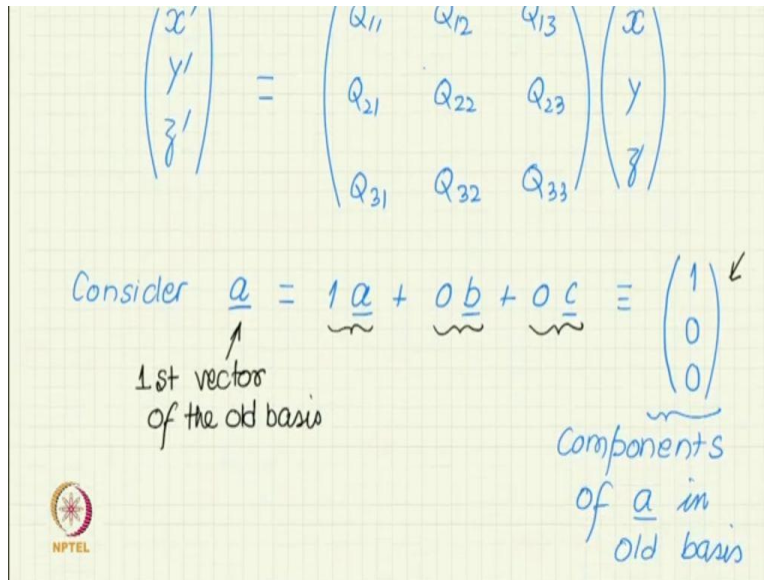 x' Q11 Q12 Q13 x
y' = Q21 Q22 Q23 y
z' Q31 Q32 Q33 z
Consider a = 1 a + 0 b + 0 c ≡ 1
0
0
1st vector
of the old basis
Components
of a in
old basis
NPTEL